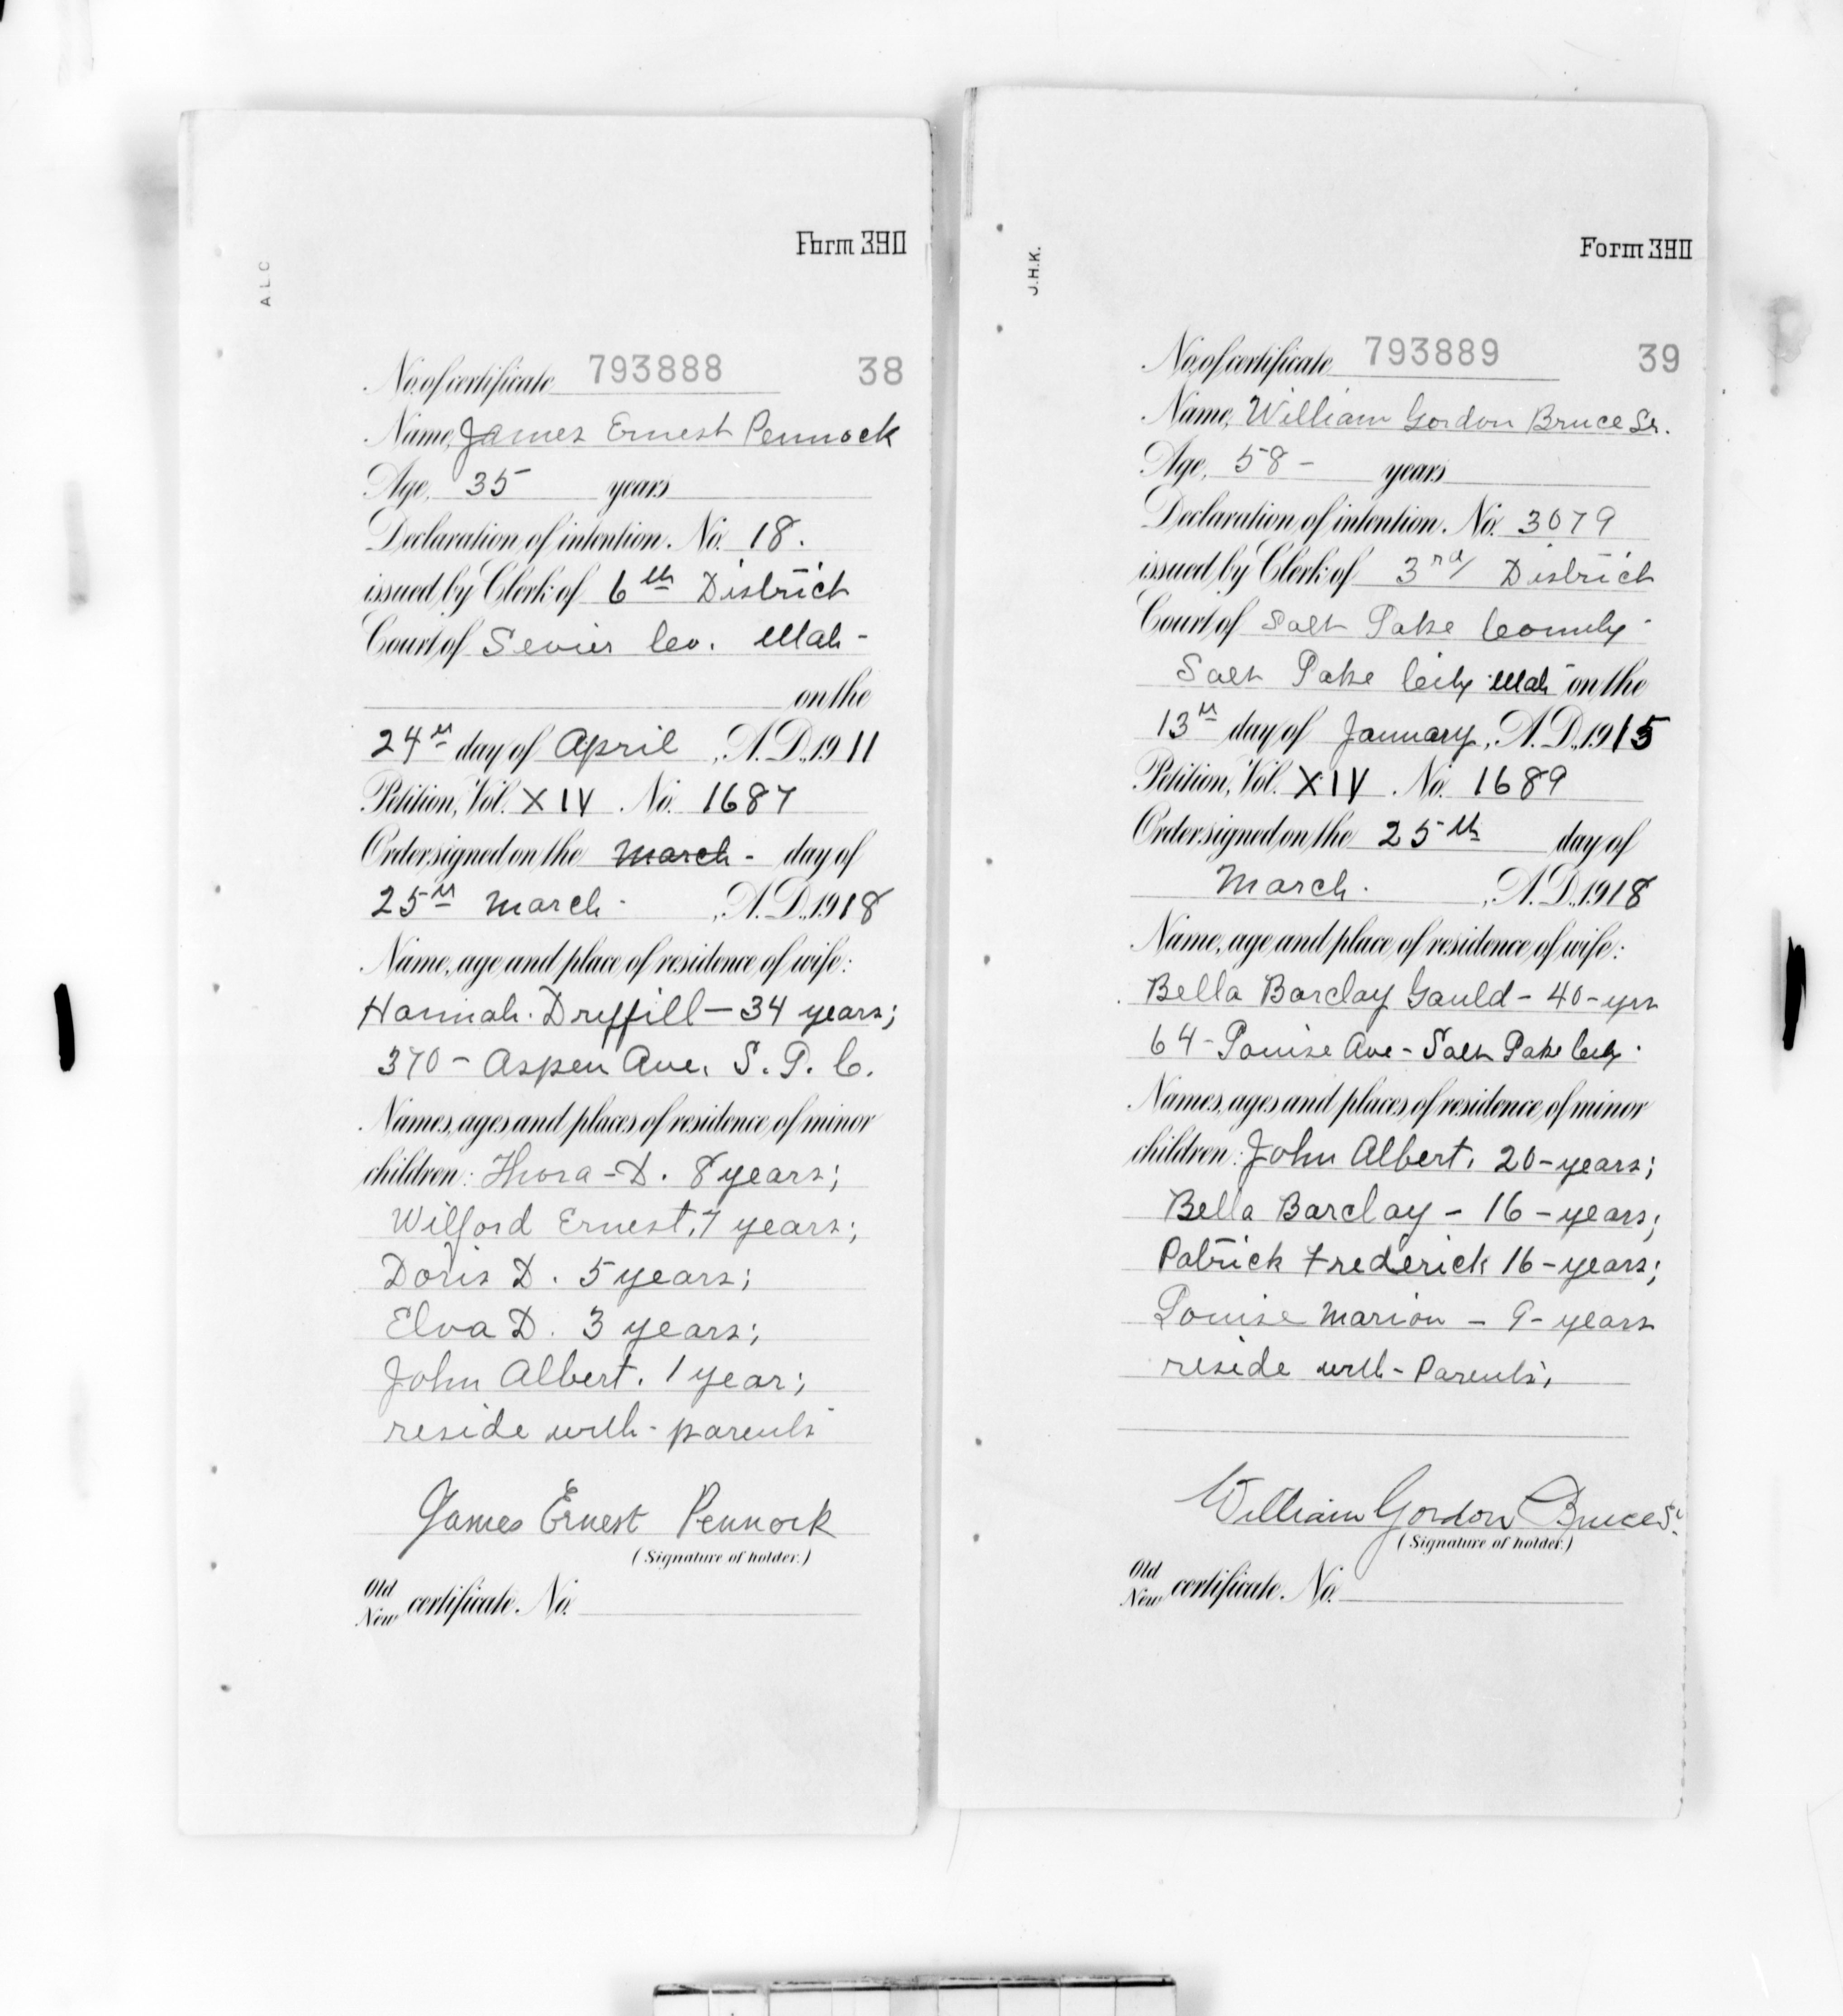 Form 390
A L C
No. of certificate 793888 38
Name, James Ernest Pennock
Age, 35 years
Declaration of intention, No. 18.
issued by Clerk of 6th District
Court of Sevier Co. Utah -
on the
24th day of April, A.D., 1911
Petition, Vol. XIV. No. 1687
Order signed on the March - day of
25th March -, A.D., 1918
Name, age and place of residence of wife:
Hannah Dryfill - 34 years;
370 - Aspen Ave. S. L. C.
Names, ages and places of residence of minor
children: Thora - D. 8 years;
Wilford Ernest, 7 years;
Doris D. 5 years;
Elva D. 3 years;
John Albert. 1 year;
reside with - parents
James Ernest Pennock
(Signature of holder.)
Old
New certificate, No.
Form 390
J.H.K.
No. of certificate 793889 39
Name, William Gordon Bruce Sr.
Age, 58 - years
Declaration of intention, No. 3079
issued by Clerk of 3rd District
Court of Salt Lake County -
Salt Lake City Utah on the
13th day of January, A.D., 1915
Petition, Vol. XIV. No. 1689
Order signed on the 25th day of
March -, A.D., 1918
Name, age and place of residence of wife:
Bella Barclay Gauld - 40 - yrs
64 - Louise Ave - Salt Lake City.
Names, ages and places of residence of minor
children: John Albert. 20 - years;
Bella Barclay - 16 - years;
Patrick Frederick 16 - years;
Louise Marion - 9 - years
reside with - Parents;
William Gordon Bruce Sr.
(Signature of holder.)
Old
New certificate, No.